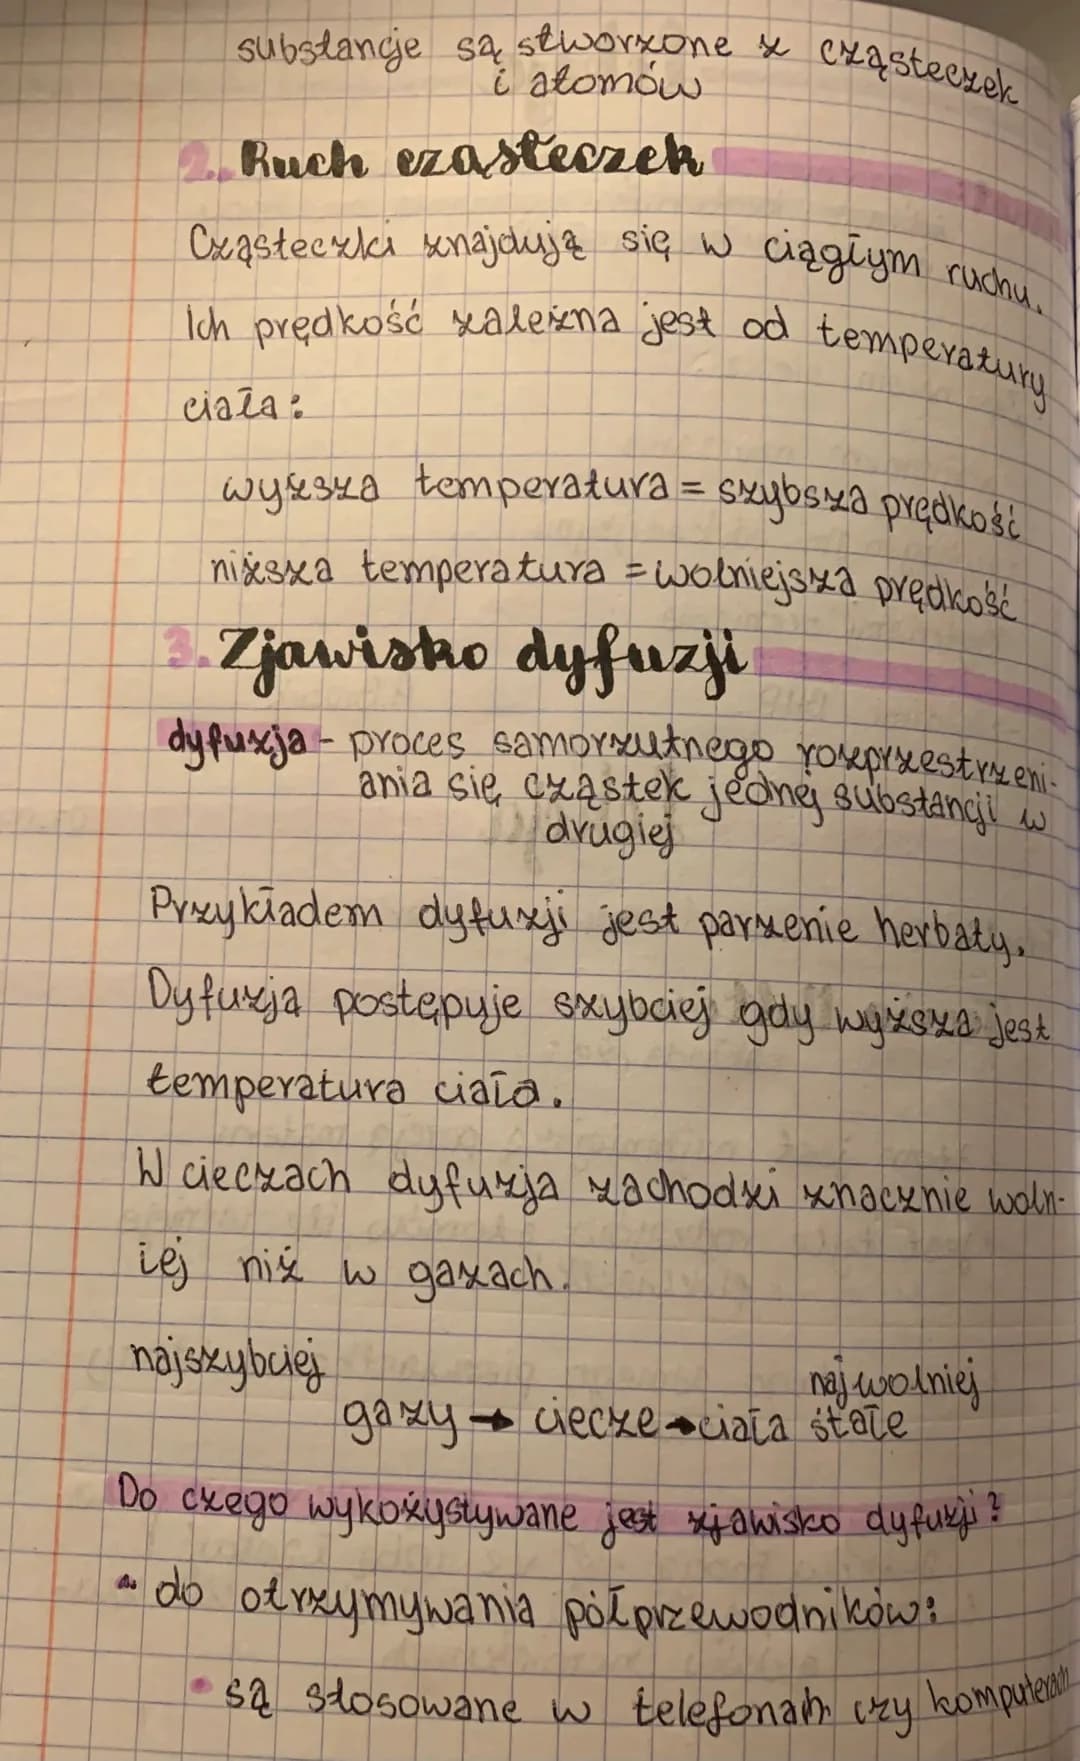 substancje są stworzone z cząsteczek
i atomów
2. Ruch cząsteczek
Cząsteczki znajdują się w ciągłym ruchu.
Ich prędkość zależna jest od temperatury
ciała:
wyższa temperatura = szybsza prędkość
niższa temperatura = wolniejsza prędkość
3. Zjawisko dyfuzji
dyfuzja - proces samorzutnego rozprzestrzeni-
ania się cząstek jednej substancji w
drugiej
Przykładem dyfuzji jest parzenie herbaty.
Dyfuzja postępuje szybciej gdy wyższa jest
temperatura ciała.
W cieczach dyfuzja zachodzi znacznie woln-
iej niż w gazach.
najszybciej
najwolniej
gazy → ciecze → ciała stałe
Do czego wykożystywane jest zjawisko dyfuzji?
• do otrzymywania półprzewodników:
• są stosowane w telefonach czy komputerach